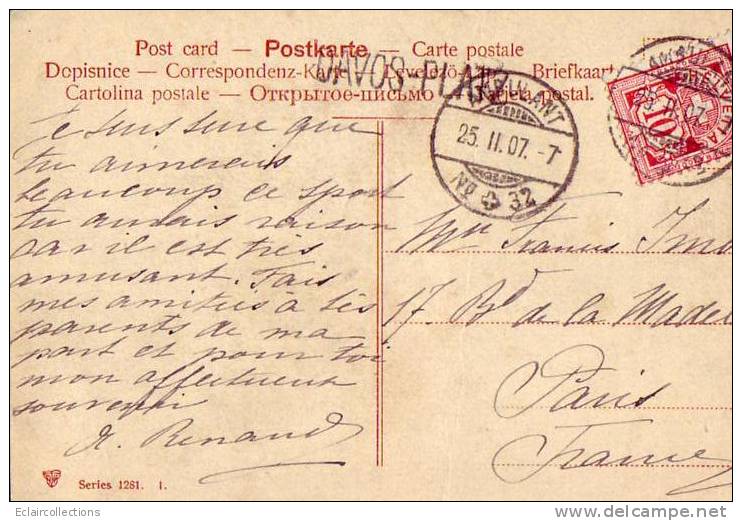 Post card — Postkarte — Carte postale
Dopisnice — Correspondenz-Karte — Levelező-Lap — Briefkaart
Cartolina postale — Открытое письмо — Tarjeta postal.
DAVOS-PLATZ
AMBULANT
25. II. 07. -7
No 32
10
Je suis sûre que
tu aimerais
beaucoup ce sport
tu aurais raison
car il est très
amusant. Fais
mes amitiés à tes
parents de ma
part et pour toi
mon affectueux
souvenir
A. Renaud
Mr Francis
17. Bd de la Madel
Paris
France
Series 1281. 1.
Eclaircollections
www.delcampe.net